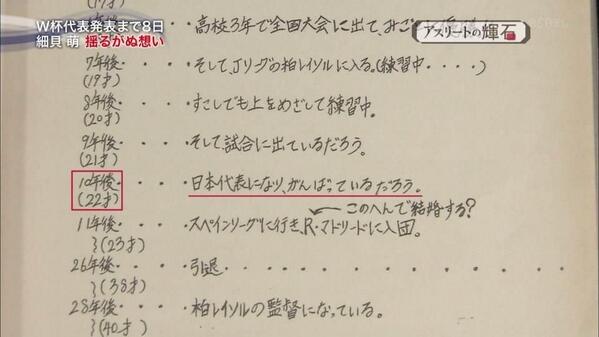 W杯代表発表まで8日
細貝 萌 揺るがぬ想い
アスリートの輝石
高校3年で全国大会に出て、みご
7年後・・・・そして、Jリーグの柏レイソルに入る。(練習中・・・・)
(19才)
8年後・・・・すこしでも上をめざして練習中。
(20才)
9年後・・・・そして試合に出ているだろう。
(21才)
10年後・・・・日本代表になり、がんばっているだろう。
(22才)
このへんで結婚する?
11年後・・・・スペインリーグに行き、R・マドリードに入団。
(23才)
26年後・・・・引退・・・・・・・・・・・・・・・
(38才)
28年後・・・・柏レイソルの監督になっている。
(40才)